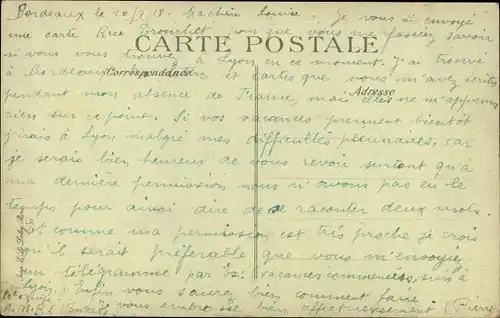 Bordeaux le 20/7/18. Ma chère Louise, je vous ai envoyé
une carte Rue pour que vous me fassiez savoir
si vous vous trouvez à Lyon en ce moment. J'ai trouvé
CARTE POSTALE
à Bordeaux et cartes que vous m'avez écrites
Correspondance
pendant mon absence de France, mais elles ne m'apprennent
Adresse
rien sur ce point. Si vos vacances prennent bientôt
j'irais à Lyon malgré mes difficultés pécunaires, car
je serais bien heureux de vous revoir surtout qu'à
ma dernière permission nous n'avons pas eu le
temps pour ainsi dire de se raconter deux mots.
Et comme ma permission est très proche je crois
qu'il serait préférable que vous m'envoyiez
un télégramme par Ex: vacances commencées, suis à
Lyon.) Enfin vous saurez bien comment faire
Je vous embrasse bien affectueusement (Pierre)